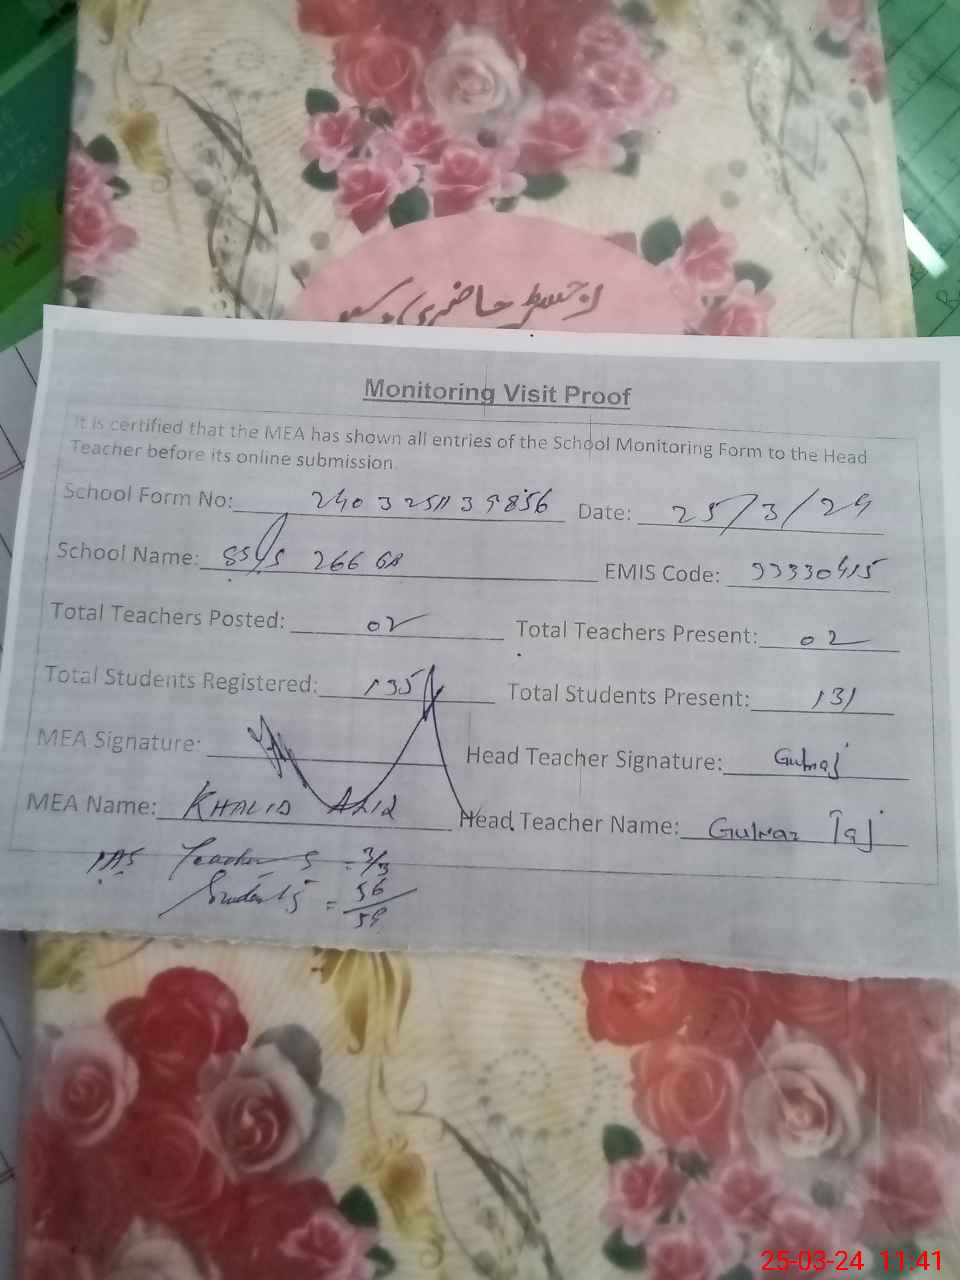 رجسٹر حاضری
Monitoring Visit Proof
It is certified that the MEA has shown all entries of the School Monitoring Form to the Head
Teacher before its online submission.
School Form No: Date: 25/3/24
School Name: 266 GB EMIS Code: 33330415
Total Teachers Posted: 02 Total Teachers Present: 02
Total Students Registered: 135 Total Students Present: 131
MEA Signature: Head Teacher Signature: Gulnaz
MEA Name: KHALID Head Teacher Name: Gulnaz Taj
Teachers = 3/3
Students = 56/59
25-03-24 11:41